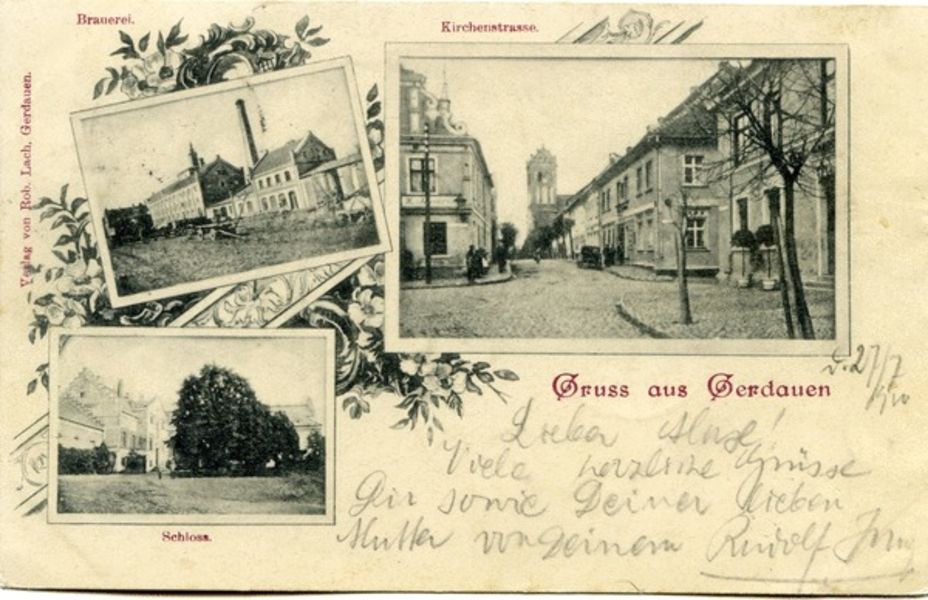 Brauerei.
Kirchenstrasse.
Verlag von Rob. Lach, Gerdauen.
Schloss.
Gruss aus Gerdauen
d. 27/7
Lieber
Viele herzliche Grüsse
Dir sowie Deiner lieben
Mutter von Deinem Rudolf